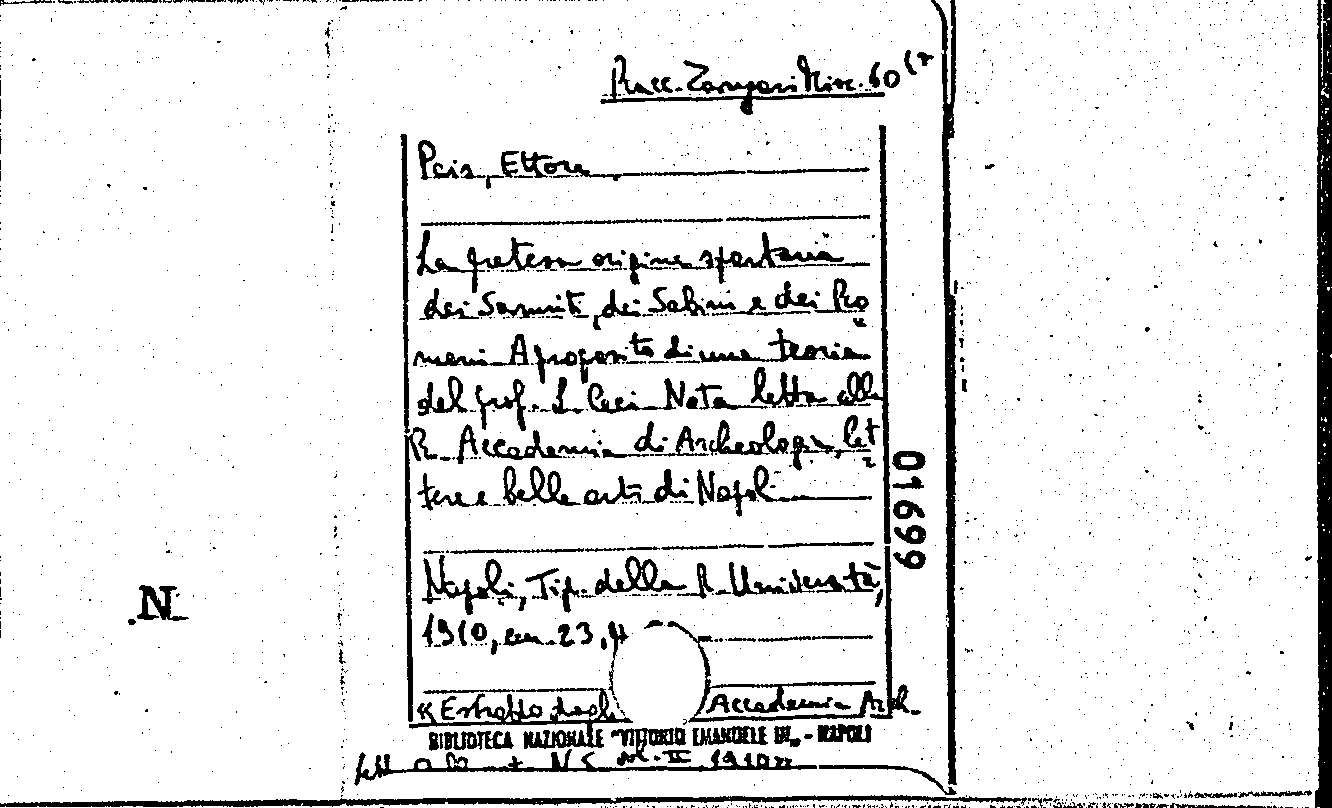 Racc. Zangari Misc. 60 (7
Pais, Ettore.
La pretesa origine spartana
dei Sanniti, dei Sabini e dei Ro
mani. A proposito di una teoria
del prof. L. Ceci Nota letta alla
R. Accademia di Archeologia, let
tere e belle arti di Napoli
Napoli, Tip. della R. Università,
1910, cm. 23,
« Estratto dagli Accademia Arch.
BIBLIOTECA NAZIONALE "VITTORIO EMANUELE III" - NAPOLI
lett N.S. vol. II 1910 »
01699
N